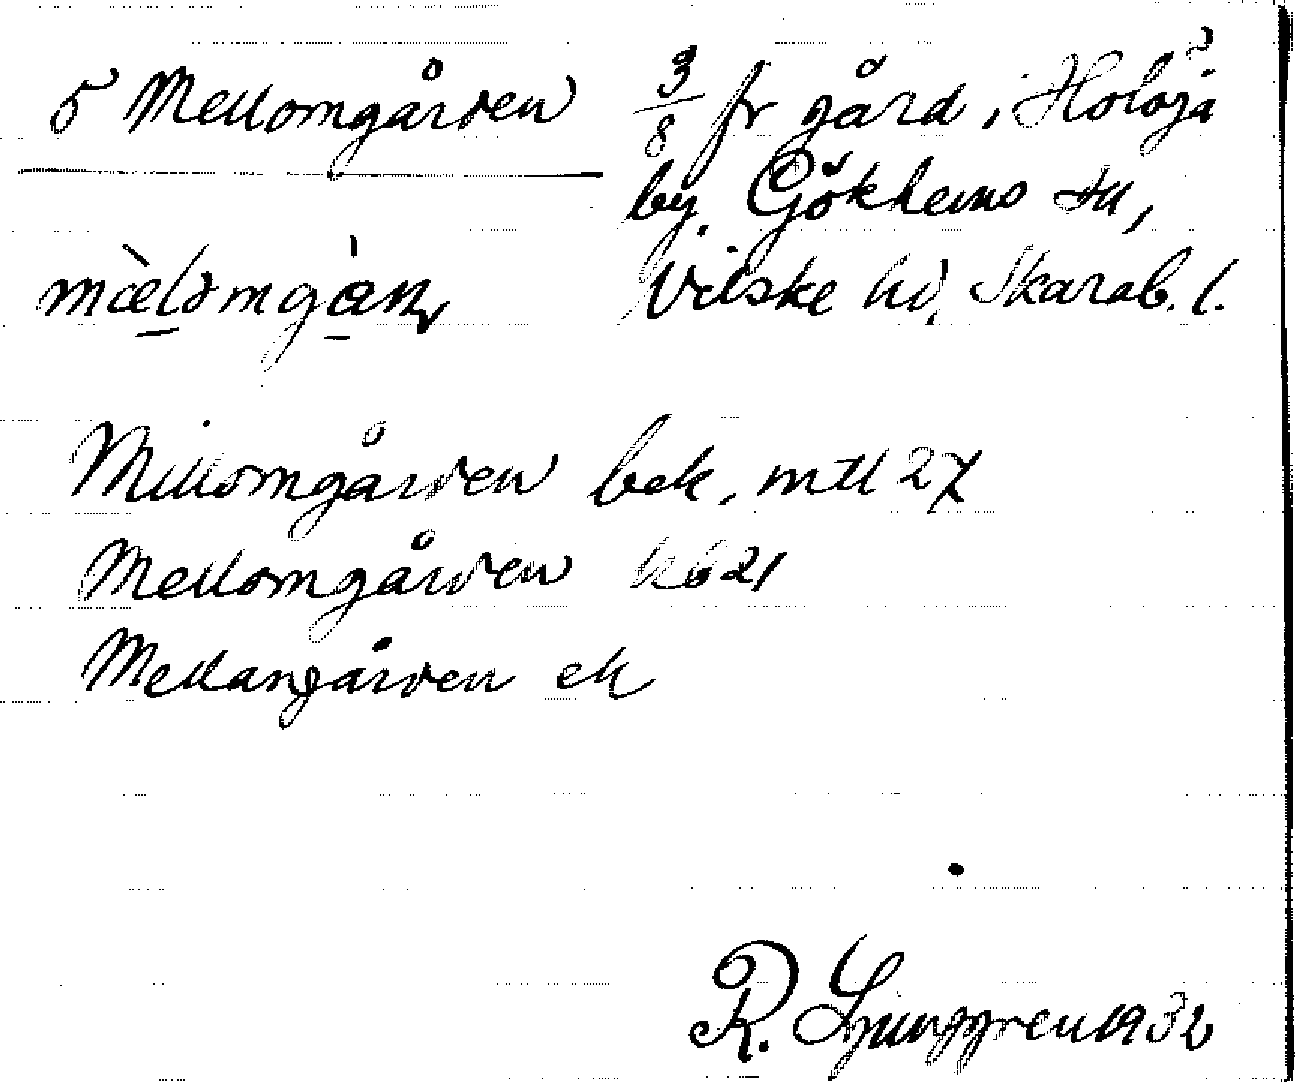 5 Mellomgården 3/8 fr gård i Holoja
by. Gökhems sn,
mæ̀lomgàṇ Vilske hd, Skarab. l.
Millomgården bek, mtl 27
Mellomgården kb 21
Mellangården ek
R. Ljunggren 1932